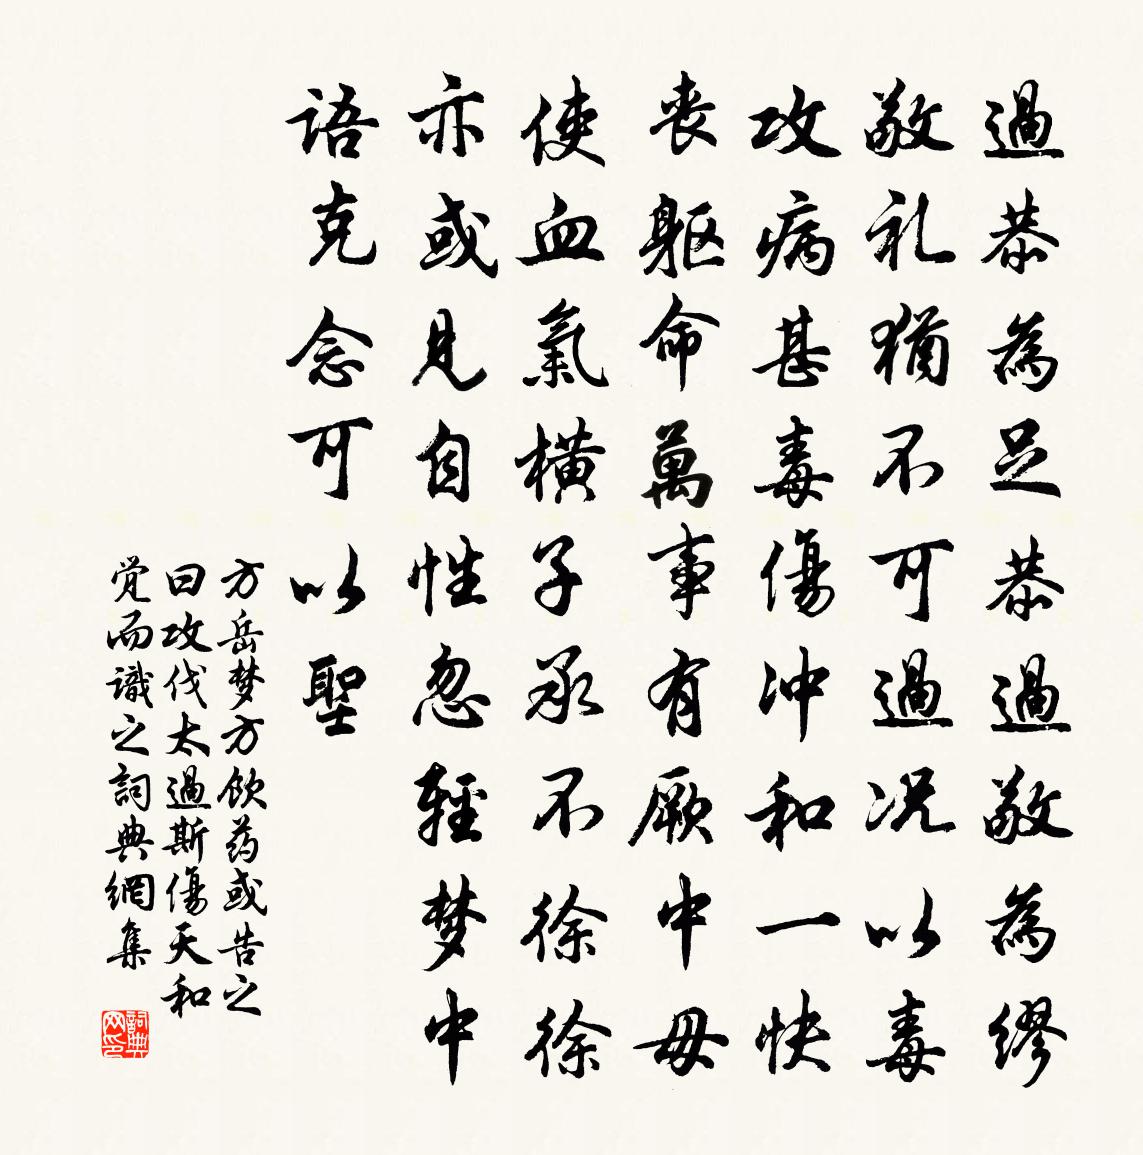 過恭為足恭過敬為繆
敬礼猶不可過況以毒
攻病甚毒傷沖和一快
丧軀命萬事有厥中毋
使血氣橫子承不徐徐
亦或見自性忽輕梦中
语克念可以聖
方岳梦方飲药或告之
曰攻伐太過斯傷天和
觉而識之詞典網集
詞典网印